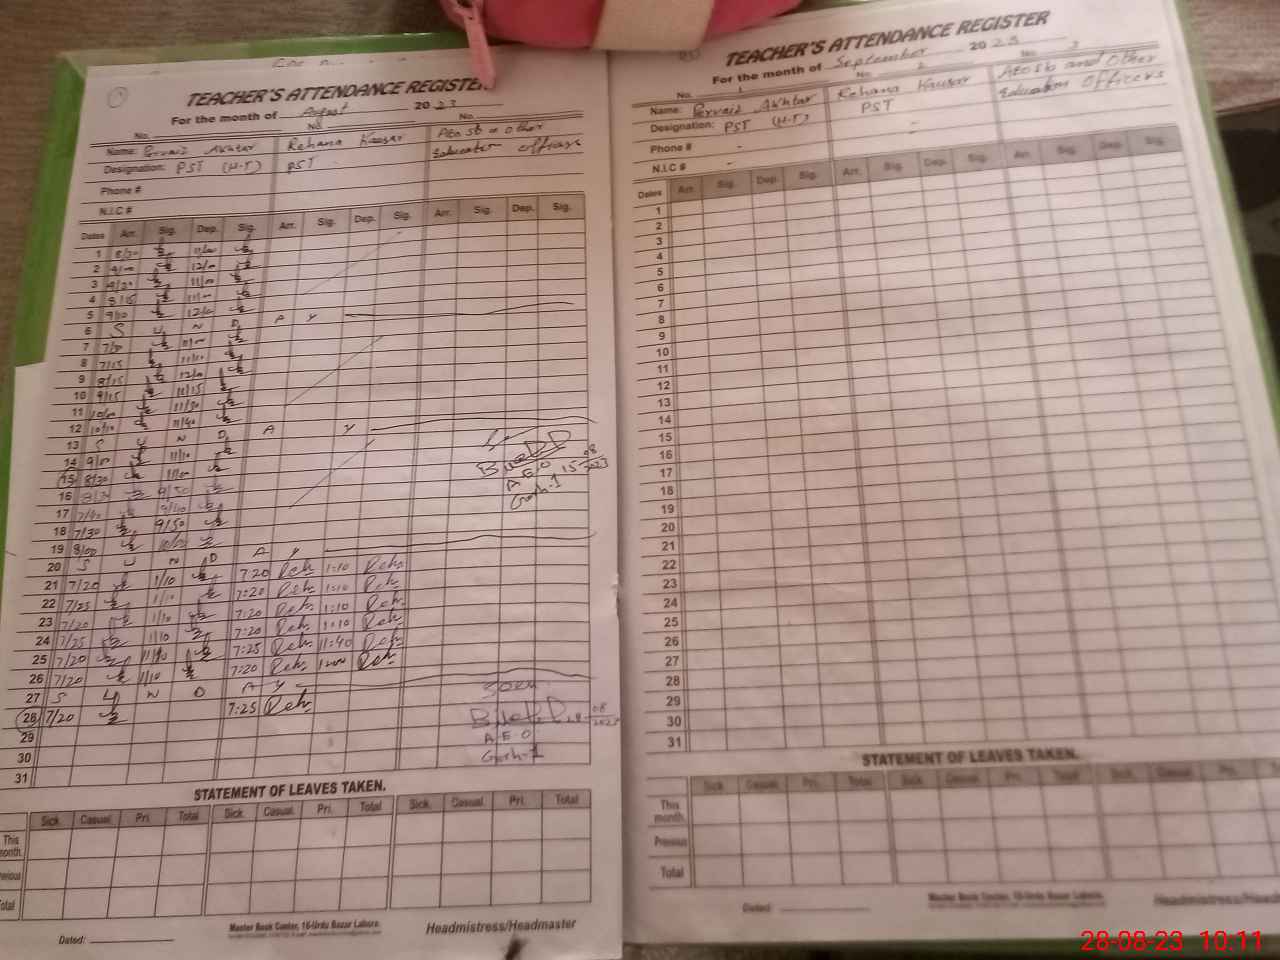 TEACHER'S ATTENDANCE REGISTER
For the month of August 2023
No. No. No.
Name: Pervaiz Akhtar Rehana Kausar
Designation: PST (H-T) PST
Phone #
N.I.C #
Dates Arr. Sig. Dep. Sig. Arr. Sig. Dep. Sig. Arr. Sig. Dep. Sig.
1 8/30 11/00
2 9/00 12/00
3 9/30 11/00
4 8/15 11/00
5 9/10 12/0
6 S U N D A Y
7 7/30 11/00
8 7/15 11/10
9 8/15 12/0
10 9/15 11/15
11 10/00 11/30
12 10/10 11/40
13 S U N D A Y
14 9/00 11/10
15 8/30 11/00
16 9/50
17 7/40
18 7/30 9/50
19 8/00 10/00
20 S U N D A Y
21 7/20 1/10 7:20 Reh. 1:10 Reh.
22 7/25 1/10 7:20 Reh. 1:10 Reh.
23 7/20 1/10 7:20 Reh. 1:10 Reh.
24 7/25 1/10 7:20 Reh. 1:10 Reh.
25 7/20 11/40 7:25 Reh. 11:40 Reh.
26 7/20 1/10 7:20 Reh. 1:00 Reh.
27 S U N D A Y
28 7/20 7:25 Reh.
29
30
31
A.E.O 15-08-2023
Garh-1
A.E.O
Garh-1
STATEMENT OF LEAVES TAKEN.
Sick. Casual. Pri. Total Sick. Casual. Pri. Total Sick. Casual. Pri. Total
This month.
Previous
Total
Master Book Center, 16-Urdu Bazar Lahore.
Dated: Headmistress/Headmaster
TEACHER'S ATTENDANCE REGISTER
For the month of September 2023
No. 1 No. 2 No. 3
Name: Pervaiz Akhtar Rehana Kausar AEOSb and Other
Designation: PST (H-T) PST Education Officers
Phone # -
N.I.C # -
Dates Arr. Sig. Dep. Sig. Arr. Sig. Dep. Sig. Arr. Sig. Dep. Sig.
1
2
3
4
5
6
7
8
9
10
11
12
13
14
15
16
17
18
19
20
21
22
23
24
25
26
27
28
29
30
31
STATEMENT OF LEAVES TAKEN.
Sick Casual Pri. Total Sick Casual Pri. Total Sick Casual Pri.
This month.
Previous
Total
Master Book Center, 16-Urdu Bazar Lahore.
Dated:
28-08-23 10:11